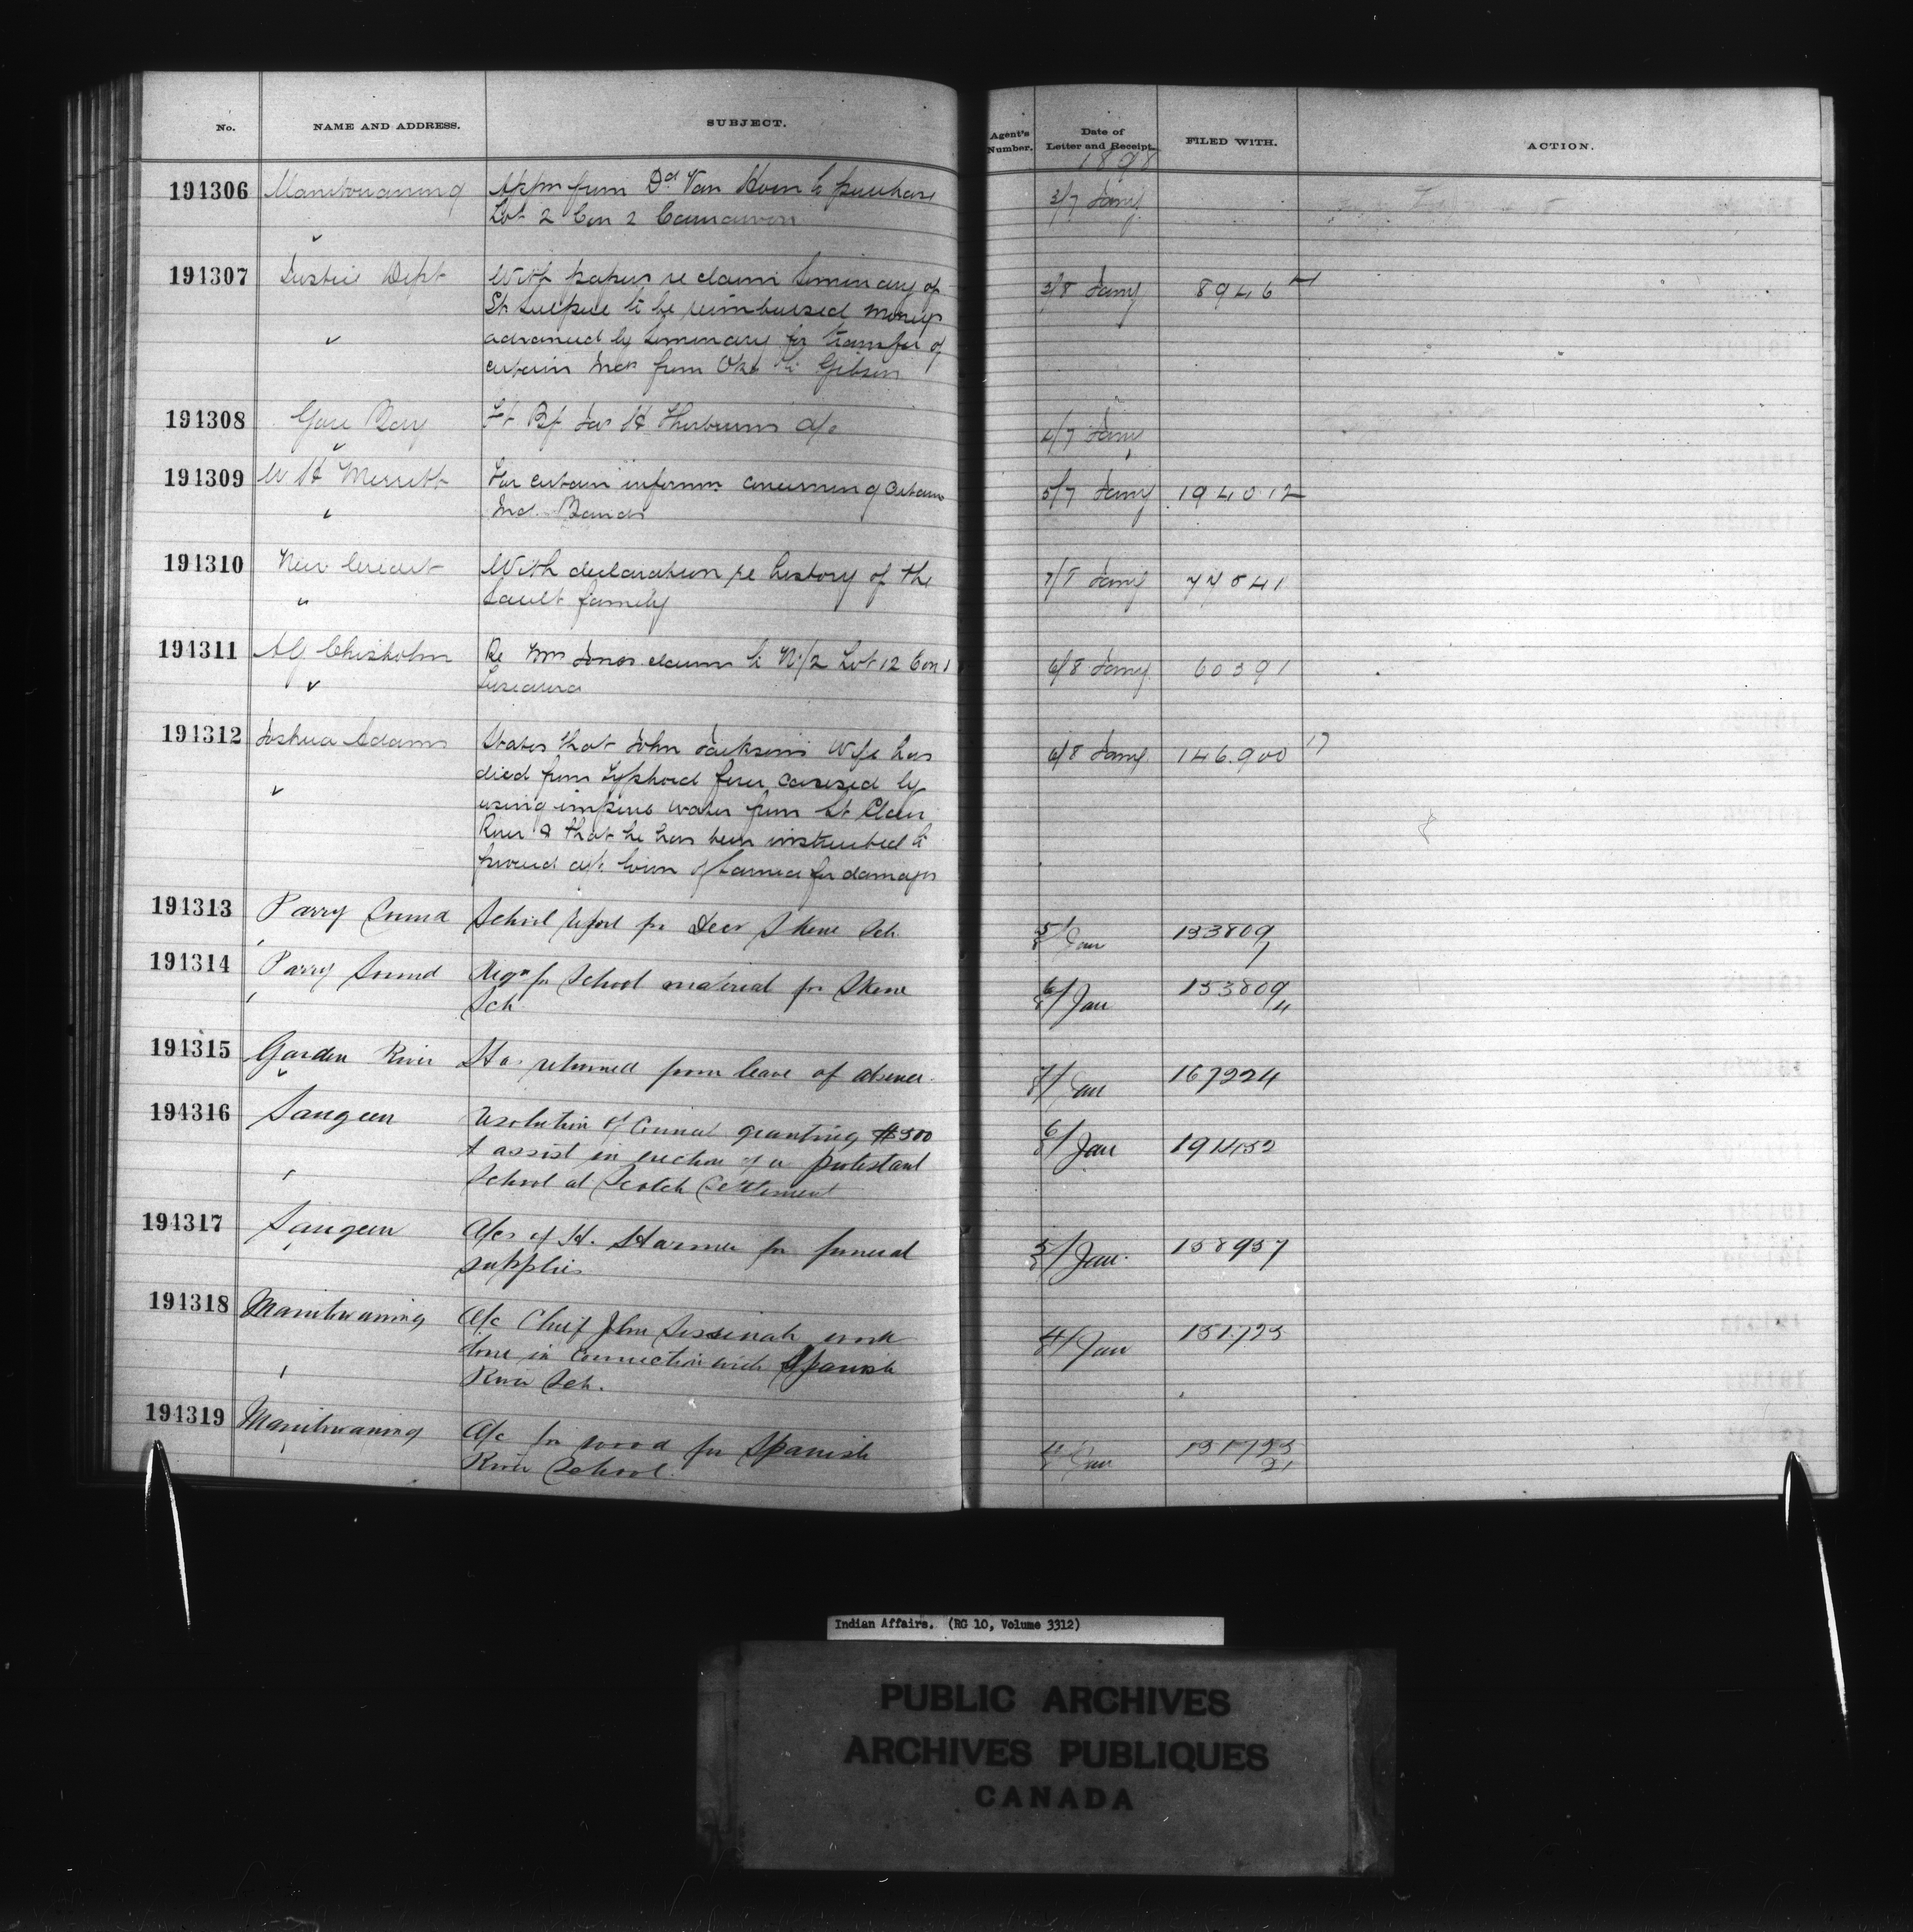 No. NAME AND ADDRESS. SUBJECT. Agent's Number. Date of Letter and Receipt. FILED WITH. ACTION.
1898
194306 Manitowaning Appn from Dd Van Horn to purchase 3/7 Jany
Lot 2 Con 2 Carnarvon
194307 Justice Dept With papers re claim Seminary of 3/8 Jany 8946
St Sulpice to be reimbursed moneys
advanced by Seminary for transfer of
certain Inds from Oka to Gibson
194308 Gore Bay Jas H Thorburns a/c 4/7 Jany
194309 W H Merritt For certain informn concerning certain 5/7 Jany 194012
Ind. Bands
194310 New Credit With declaration re history of the 7/8 Jany 77541
" Sault family
194311 A G Chisholm Re Mrs Jones claim to N 1/2 Lot 12 Con 1 6/8 Jany 60391
Tuscarora
194312 Joshua Adams States that John Jackson's wife has 6/8 Jany 146.900 17
died from Typhoid fever caused by
using impure water from St Clair
River & that he has been instructed to
proceed agt. town of Sarnia for damages
194313 Parry Sound School report for Skene Sch. 5/8 Jan 133809
194314 Parry Sound Reqn for School material for Skene 6/8 Jan 133809
Sch
194315 Garden River Has returned from leave of absence. 7/8 Jan 167224
194316 Saugeen Resolution of Council granting $300 6/8 Jan 194152
to assist in erection of a protestant
School at Scotch Settlement
194317 Saugeen A/cs of H. Harmer for funeral 5/8 Jan. 158957
supplies
194318 Manitowaning A/c Chief John work 4/8 Jan 151723
done in connection with Spanish
River Sch.
194319 Manitowaning A/c for wood for Spanish 4/8 Jan 151723
River School. 21
Indian Affairs. (RG 10, Volume 3312)
PUBLIC ARCHIVES
ARCHIVES PUBLIQUES
CANADA